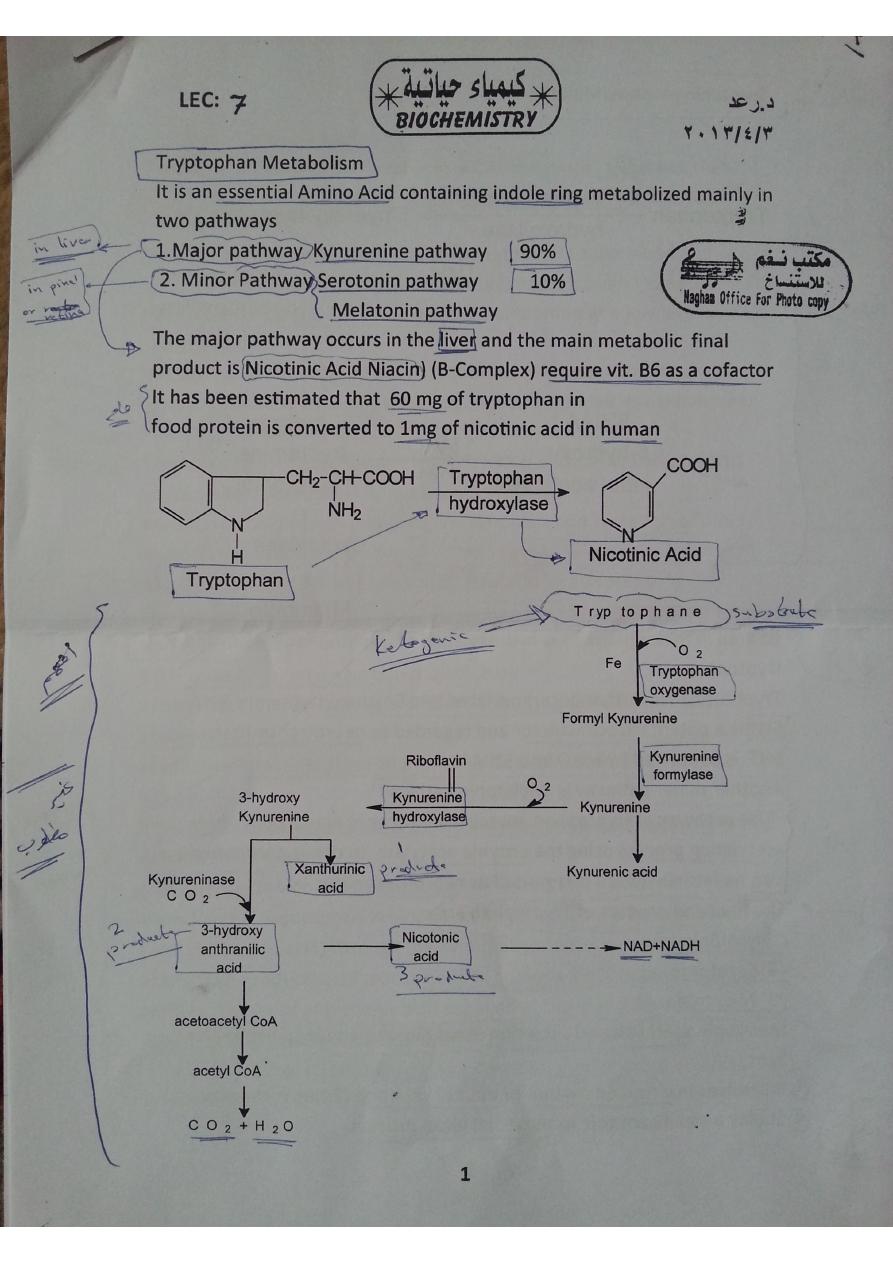 LEC: 7
كيمياء حياتية
BIOCHEMISTRY
د.رعد
٢٠١٣/٤/٣
Tryptophan Metabolism
It is an essential Amino Acid containing indole ring metabolized mainly in
two pathways
in liver
1.Major pathway Kynurenine pathway 90%
in pineal
2. Minor Pathway Serotonin pathway 10%
or retina
Melatonin pathway
مكتب نغم
للاستنساخ
Nagham Office For Photo copy
The major pathway occurs in the liver and the main metabolic final
product is Nicotinic Acid Niacin) (B-Complex) require vit. B6 as a cofactor
It has been estimated that 60 mg of tryptophan in
food protein is converted to 1mg of nicotinic acid in human
CH2-CH-COOH
NH2
N
H
Tryptophan
Tryptophan
hydroxylase
COOH
N
Nicotinic Acid
Tryptophane substrate
Ketogenic
O2
Fe
Tryptophan
oxygenase
Formyl Kynurenine
Kynurenine
formylase
Riboflavin
Kynurenine
hydroxylase
O2
Kynurenine
3-hydroxy
Kynurenine
Kynurenic acid
Xanthurinic
acid
1
products
Kynureninase
CO2
2
products
3-hydroxy
anthranilic
acid
Nicotonic
acid
3 products
NAD+NADH
acetoacetyl CoA
acetyl CoA
CO2 + H2O
مطلوب
1